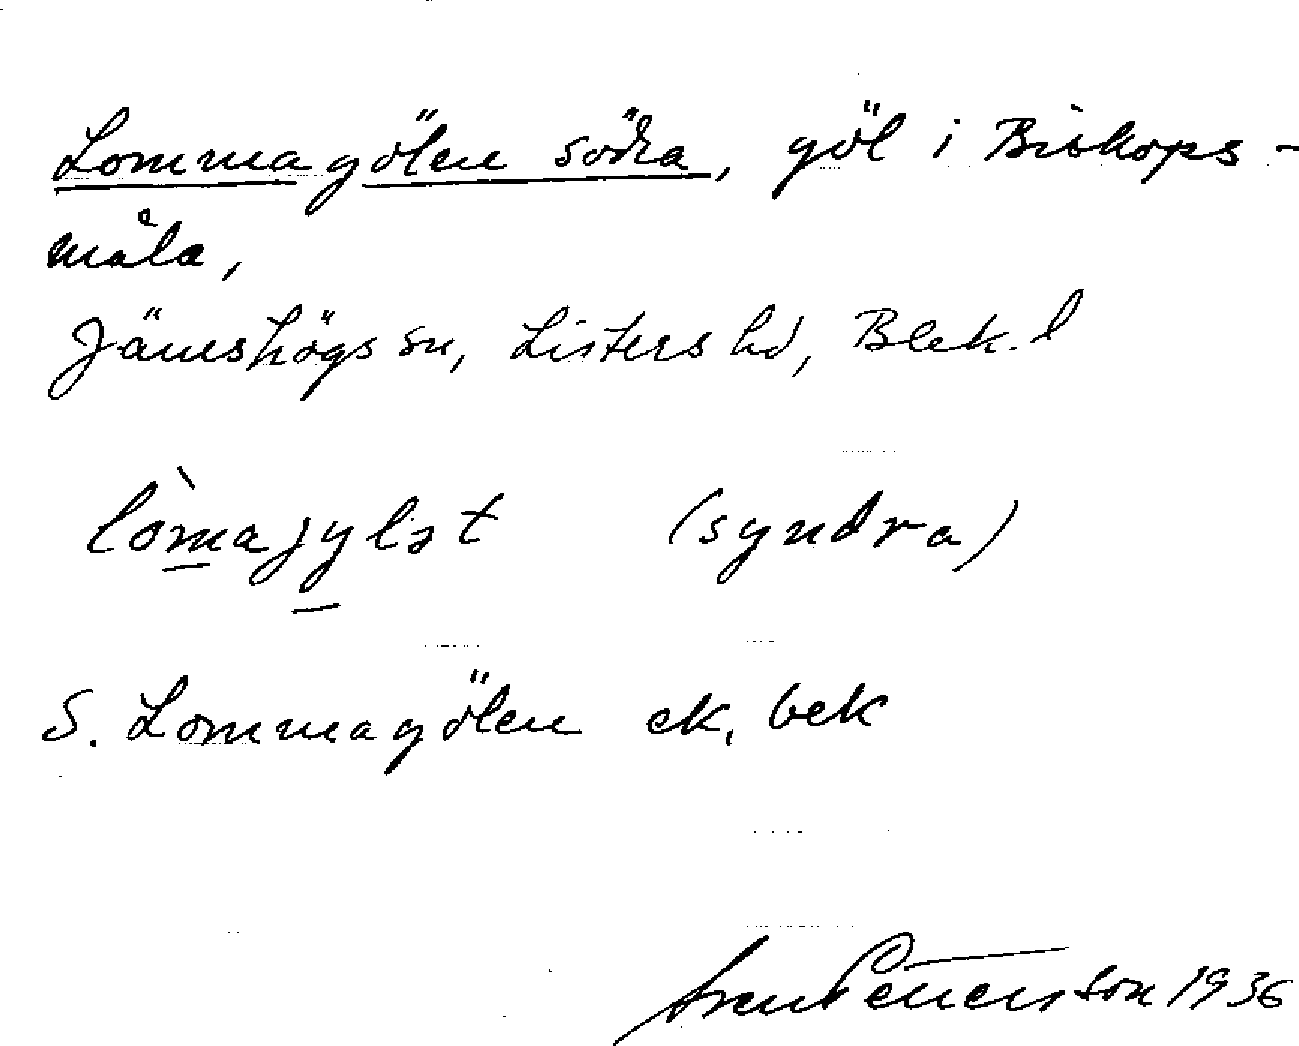 Lommagölen södra, göl i Biskops-
måla,
Jämshögs sn, Listers hd, Blek. l
lòmajylət (syndra)
S. Lommagölen ek, bek
Sven Petterson 1936